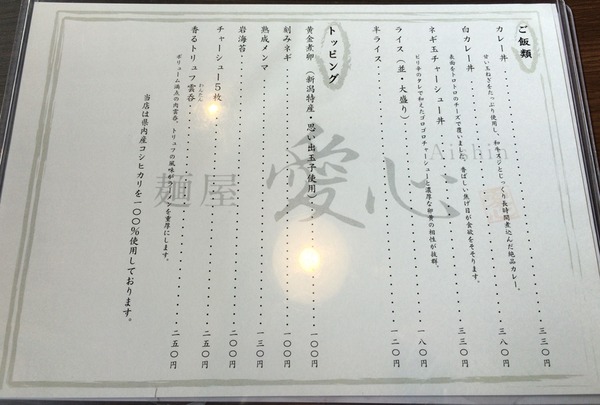 ご飯類
カレー丼 三三〇円
甘い玉ねぎをたっぷり使用し、和牛スジとじっくり長時間煮込んだ絶品カレー。
白カレー丼 三八〇円
表面をトロトロのチーズで覆いました。香ばしい焦げ目が食欲をそそります。
ネギ玉チャーシュー丼 三三〇円
ピリ辛のタレで和えたゴロゴロチャーシューと濃厚な卵黄の相性が抜群。
ライス（並・大盛り） 一八〇円
半ライス 一二〇円
トッピング
黄金煮卵（新潟特産・思い出玉子使用） 一〇〇円
刻みネギ 一〇〇円
熟成メンマ 一三〇円
岩海苔 二〇〇円
チャーシュー５枚 二五〇円
香るトリュフ雲呑 わんたん 二五〇円
ボリューム満点の肉雲呑、トリュフの風味がラーメンを重厚にします。
当店は県内産コシヒカリを一〇〇％使用しております。
麺屋 愛心
Aishin